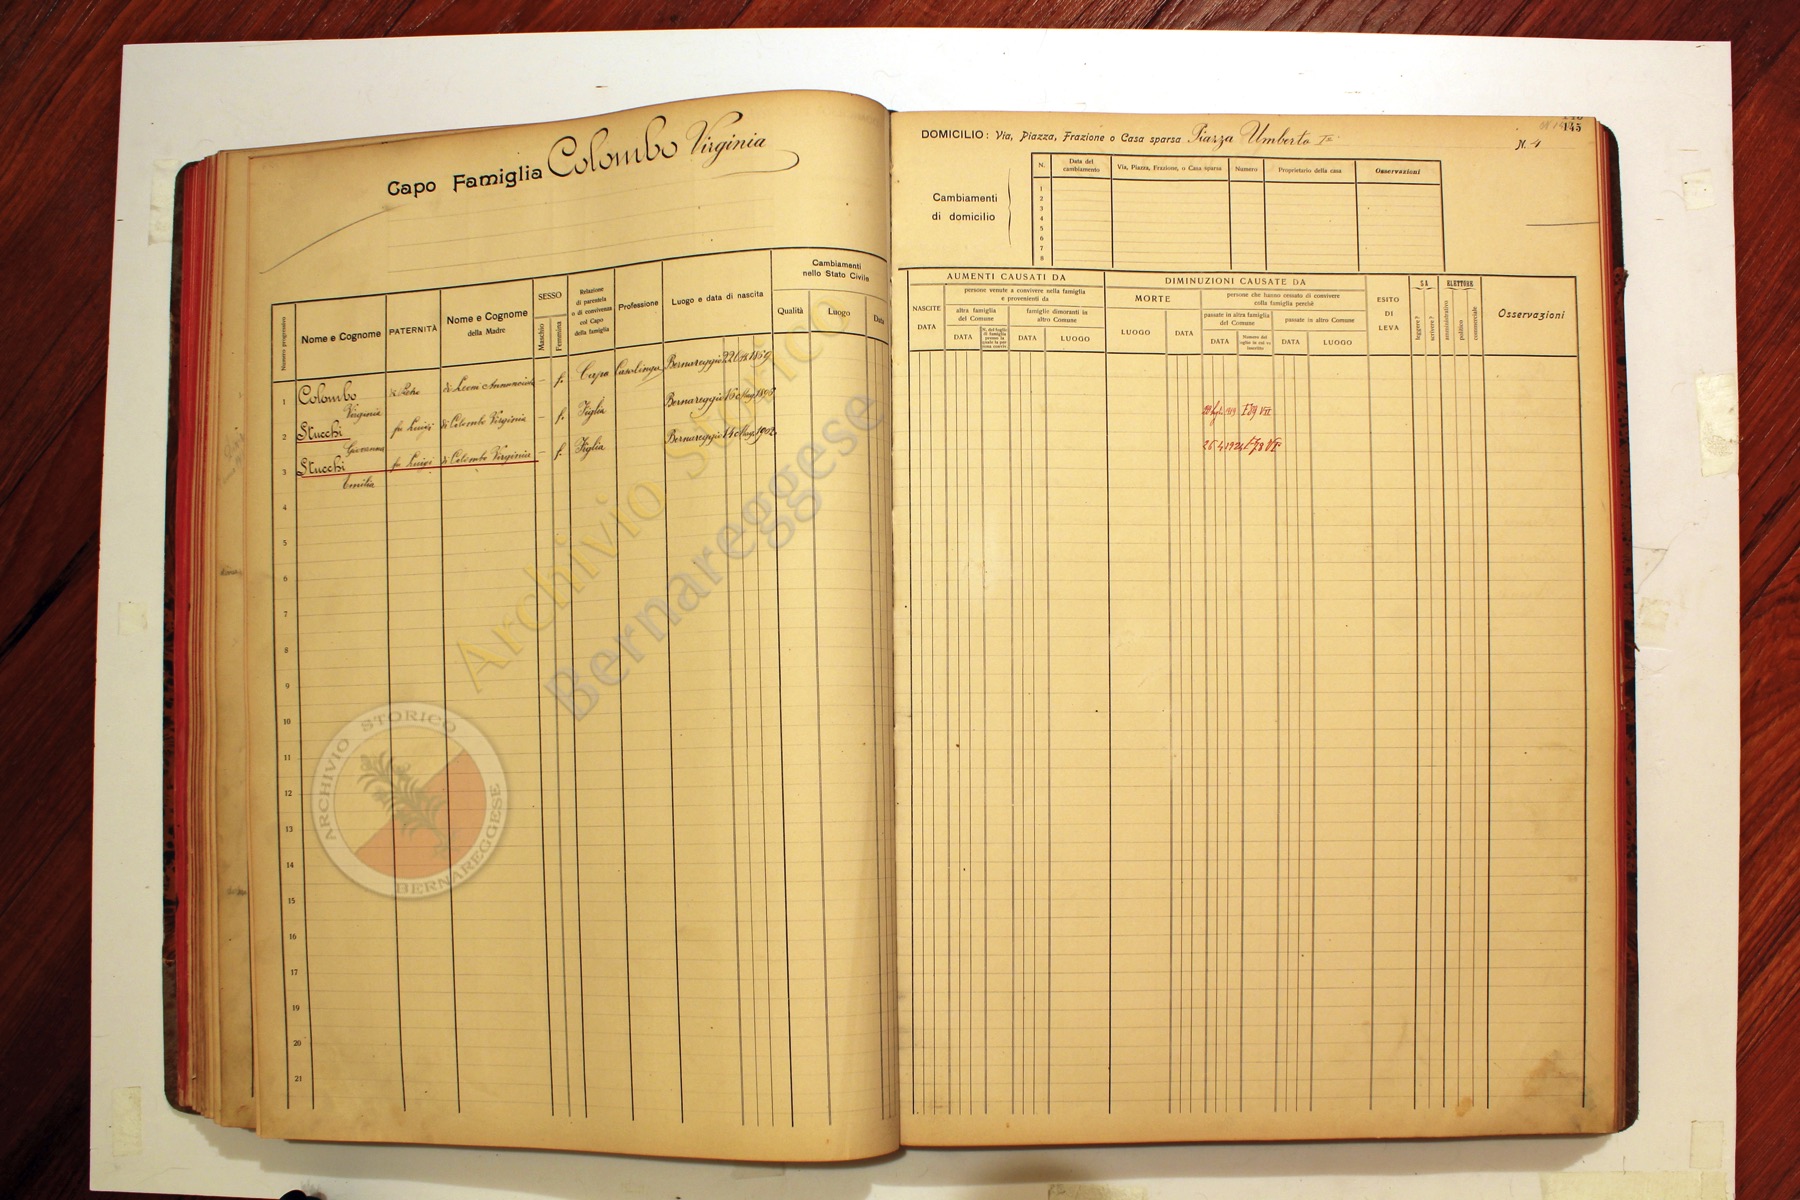 Capo Famiglia Colombo Virginia
Numero progressivo
Nome e Cognome
PATERNITÀ
Nome e Cognome
della Madre
SESSO
Maschio
Femmina
Relazione
di parentela
o di convivenza
col Capo
della famiglia
Professione
Luogo e data di nascita
Cambiamenti
nello Stato Civile
Qualità
Luogo
Data
1 Colombo Virginia di Leoni f. Capo Casalinga Bernareggio
2 Stucchi Giovanna fu Luigi di Colombo Virginia – f. Figlia Bernareggio 16 Mag.
3 Stucchi Emilia fu Luigi di Colombo Virginia – f. Figlia Bernareggio 14 Mag. 1902
4
5
6
7
8
9
10
11
12
13
14
15
16
17
18
19
20
21
145
DOMICILIO: Via, Piazza, Frazione o Casa sparsa Piazza Umberto Iº N. 4
Cambiamenti
di domicilio
N.
Data del
cambiamento
Via, Piazza, Frazione, o Casa sparsa
Numero
Proprietario della casa
Osservazioni
1
2
3
4
5
6
7
8
AUMENTI CAUSATI DA
NASCITE
DATA
persone venute a convivere nella famiglia
e provenienti da
altra famiglia
del Comune
famiglie dimoranti in
altro Comune
DATA
DATA
LUOGO
DIMINUZIONI CAUSATE DA
MORTE
LUOGO
DATA
persone che hanno cessato di convivere
colla famiglia perchè
passate in altra famiglia
del Comune
passate in altro Comune
DATA
DATA
LUOGO
ESITO
DI
LEVA
SA
leggere?
scrivere?
ELETTORE
amministrativo
politico
commerciale
Osservazioni
Archivio Storico
Bernareggese
ARCHIVIO STORICO
BERNAREGGESE